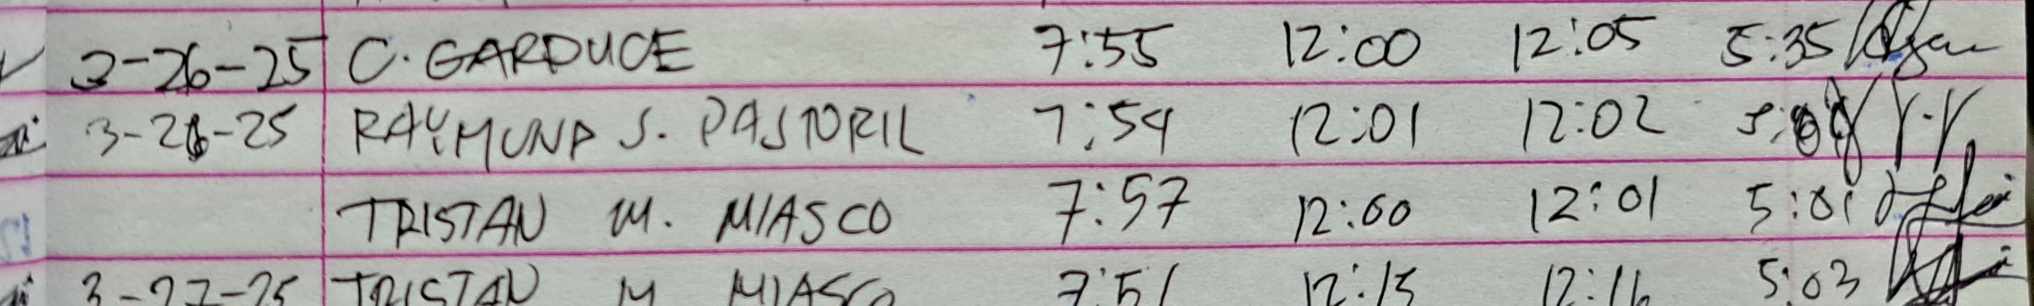 3-26-25 C. GARDUCE 7:55 12:00 12:05 5:35
3-26-25 RAYMUND S. PASTORIL 7:54 12:01 12:02
TRISTAN M. MIASCO 7:57 12:00 12:01 5:01
3-27-25 TRISTAN M MIASCO 7:51 12:15 12:16 5:03